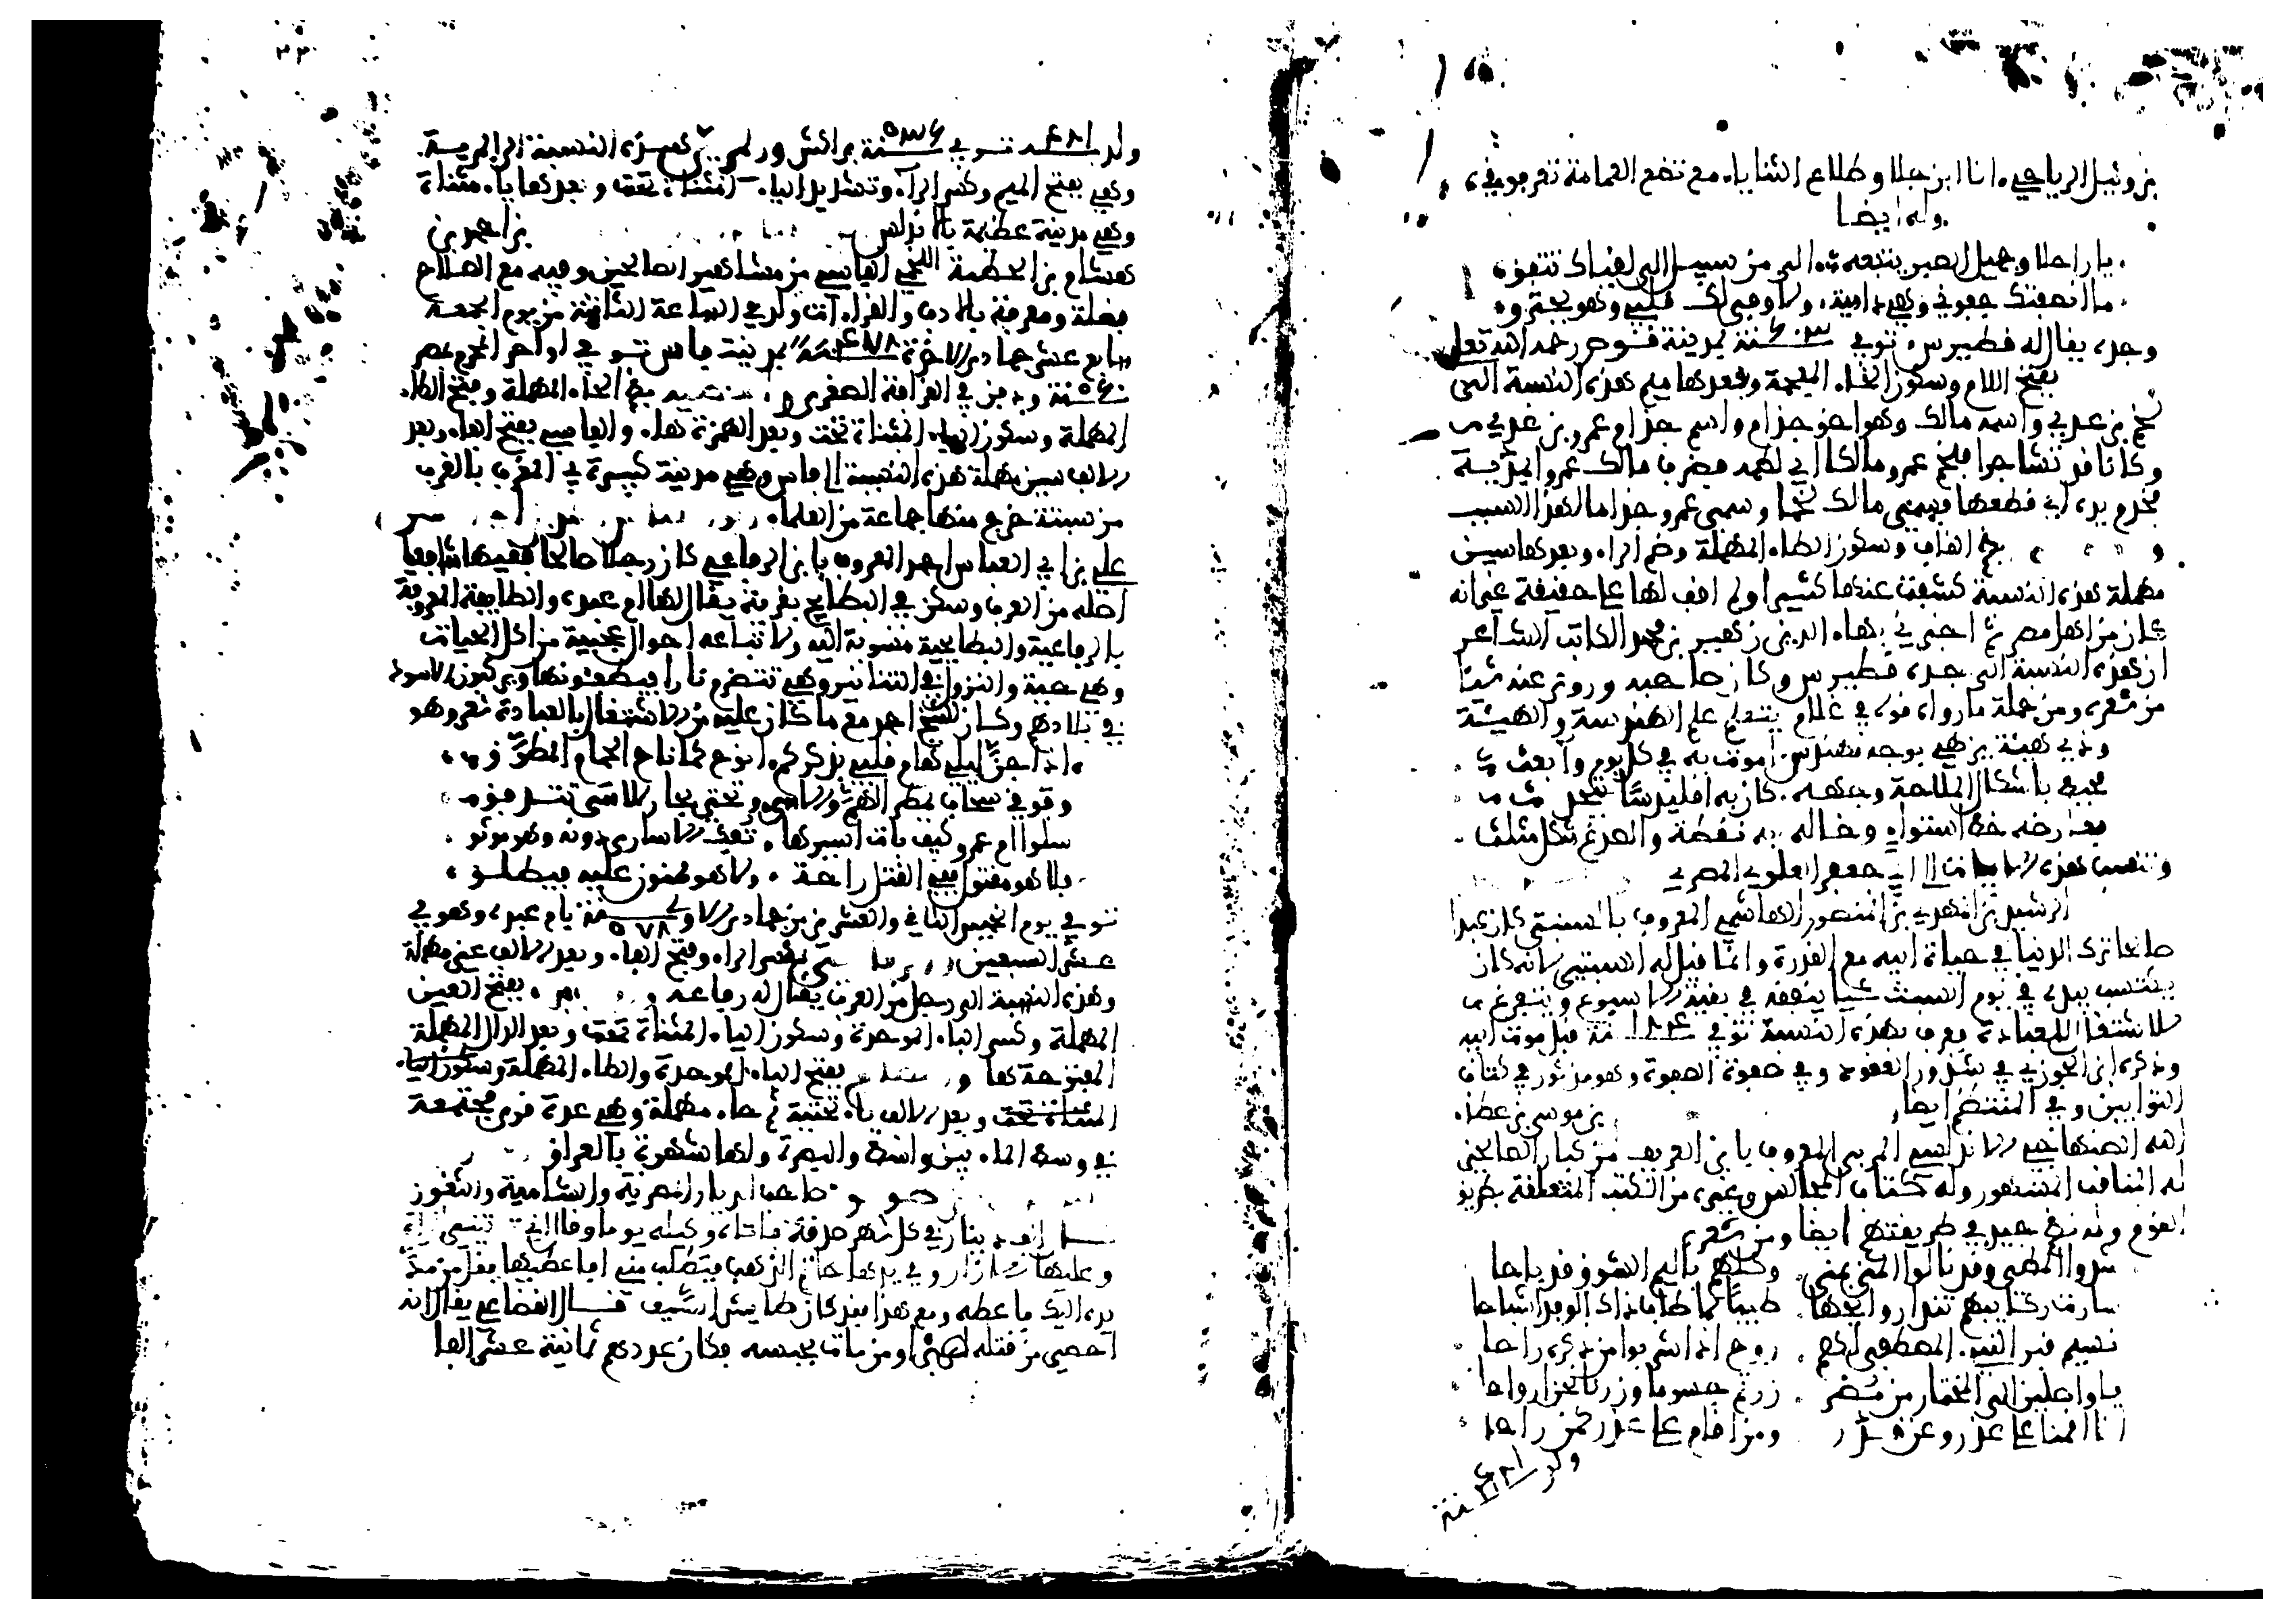 بن وثيل الرياحي. انا ابن جلا وطلاع الثنايا. متى تضع العمامة تعرفوني،
وله ايضا
يا راحلا وجميل الصبر يتبعه. الى من سبيل الى لقياك تتفق.
ما انصفتك جفوني وهي دامية. ولا وفى لك قلبي وهو يحترق.
وجده يقال له قطيرس. توفي سنة بمدينة قوص رحمه الله تعلى
بفتح اللام وسكون الخاء المعجمة وبعدها ميم هذه النسبة الى
لخم بن عدي واسمه مالك وهو اخو جذام واسم جذام عمرو بن عدي
وكانا قد تشاجرا فلخم عمرو مالكا اي لطمه فضرب مالك عمرا بمدية
فجذم يده اي قطعها فسمي مالك لخما وسمي عمرو جذاما لهذا السبب
و بضم القاف وسكون الطاء المهملة وضم الراء وبعدها سين
مهملة هذه النسبة كشفت عنها كثيرا ولم اقف لها على حقيقة غير انه
كان من اهل مصر ثم اخبرني بهاء الدين زهير بن محمد الكاتب الشاعر
ان هذه النسبة الى جده قطيرس وكان صاحبه وروى عنه شيئا
من شعره ومن جملة ما رواه قوله في غلام يتعلم علم الهندسة والهيئة
وذي هيئة يزهى بوجه مهندس. اموت به في كل يوم وابعث
محيط باشكال الملاحة وجهه. كان به اقليدسا يتحدث
فعارضه خط استواء وخاله. به نقطة والصدغ شكل مثلث
وتنسب هذه الابيات الى ابي جعفر العلوي المصري
الرشيد بن المهدي بن المنصور الهاشمي المعروف بالسبتي كان عبدا
صالحا ترك الدنيا في حياة ابيه مع القدرة وانما قيل له السبتي لانه كان
يكتسب بيده في يوم السبت شيئا ينفقه في بقية الاسبوع ويتفرغ
للاشتغال للعبادة فعرف بهذه النسبة توفي سنة قبل موت ابيه
وذكره ابن الجوزي في شذور العقود وفي صفوة الصفوة وهو مذكور في كتاب
التوابين وفي المنتظم ايضا، بن موسى بن عطاء
الله الصنهاجي الاندلسي المريي المعروف بابن العريف من كبار الصالحين
له المناقب المشهور وله كتاب المجالس وغيره من الكتب المتعلقة بطريق
القوم وله نظم جيد في طريقتهم ايضا ومن شعره
شدوا المطي وقد نالوا المنى بمنى. وكلهم باليم الشوق قد باحا
سارت ركائبهم تندا روائحها. طيبا كما طاب ذاك الوفد اشباحا
نسيم قبر النبي المصطفى لهم. روح اذا شربوا من ذكره راحا
يا واصلين الى المختار من مضر. زرتم جسوما وزرنا نحن ارواحا
انا اقمنا على عذر وعن قدر. ومن اقام على عذر كمن راحا
ولد سنة
ولد توفي سنة بمراكش النسبة الى المرية.
وهي بفتح الميم وكسر الراء وتشديد الياء المثناة تحت وبعدها ياء مثناة
وهي مدينة عظيمة بالاندلس بن احمد بن
هشام بن الحطيئة اللخمي الفاسي من مشاهير الصالحين وفيه مع الصلاح
فضلة ومعرفة بالادب والقراءات ولد في الساعة الثامنة من يوم الجمعة
سابع عشر جمادى الاخرة سنة ٤٧٨ بمدينة فاس توفي في اواخر المحرم بمصر
سنة ودفن في القرافة الصغرى و بضم الحاء المهملة وفتح الطاء
المهملة وسكون الياء المثناة تحت وبعد الهمزة هاء. والفاسي بفتح الفاء وبعد
الالف سين مهملة هذه النسبة الى فاس وهي مدينة كبيرة في المغرب بالقرب
من سبتة خرج منها جماعة من العلماء.
علي بن ابي العباس احمد المعروف بابن الرفاعي كان رجلا صالحا فقيها شافعيا
اصله من العرب وسكن في البطايح بقرية يقال لها ام عبيدة والطايفة المعروفة
بالرفاعية والبطايحية منسوبة اليه ولاتباعه احوال عجيبة من اكل الحيات
وهي حية والنزول في التنانير وهي تتضرم نارا فيطفئونها ويركبون الاسود
في بلادهم وكان للشيخ احمد مع ما كان عليه من الاشتغال بالعبادة شعر وهو
اذا جن ليلي هام قلبي بذكركم. انوح كما ناح الحمام المطوق.
وفوقي سحاب يمطر الهم والاسى. وتحتي بحار للاسى تتدفق
سلوا ام عمرو كيف بات اسيرها. تفك الاسارى دونه وهو موثق.
فلا هو مقتول ففي القتل راحة. ولا هو ممنون عليه فيطلق.
توفي يوم الخميس الثاني والعشرين من جمادى الاولى سنة ٥٧٨ بام عبيدة وهو في
عشر السبعين بكسر الراء وفتح الفاء وبعد الالف عين مهملة
وهذه النسبة الى رجل من العرب يقال له رفاعة و بفتح العين
المهملة وكسر الباء الموحدة وسكون الياء المثناة تحت وبعد الدال المهملة
المفتوحة هاء و بفتح الباء الموحدة والطاء المهملة وسكون الياء
المثناة تحت وبعد الالف ياء تحتية ثم حاء مهملة وهي عدة قرى مجتمعة
في وسط الماء بين واسط والبصرة ولها شهرة بالعراق
صاحب الديار المصرية والشامية والثغور
الف دينار في كل شهر صدقة فاتاه وكيله يوما وقال اني تاتيني امراة
وعليها ازار وفي يدها خاتم الذهب فتطلب مني افاعطيها فقال من مد
يده اليك فاعطه ومع هذا فقد كان طايش السيف قال القضاعي يقال انه
احصي من قتله او من مات بحبسه فكان عددهم ثمانية عشر الفا